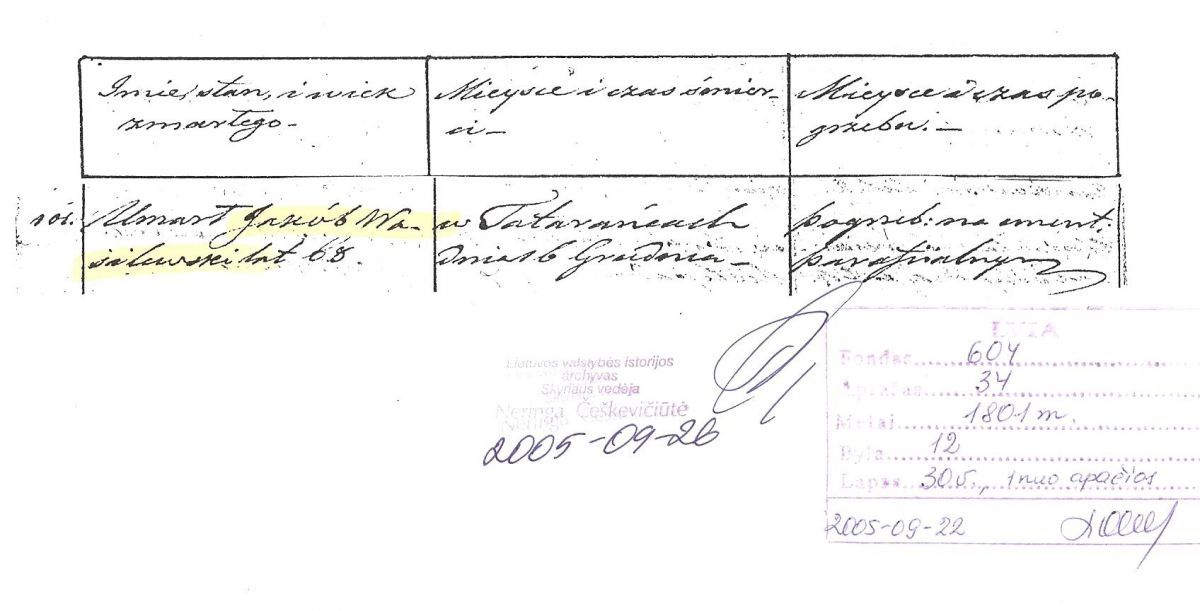 Imie, stan, i wiek
zmarłego-
Mieysce i czas śmier-
ci-
Mieysce i czas po-
grzebu.-
101.
Umarł Jakób Wa-
silewski lat 68.
w Tatarańcach
Dnia 16 Grudnia-
pogrzeb: na cment:
parafialnym
Lietuvos valstybės istorijos
archyvas
Skyriaus vedėja
Neringa Češkevičiūtė
2005-09-26
LVIA
Fondas 604
Aprašas 34
Metai 1801 m.
Byla 12
Lapas 30v., 1 nuo apačios
2005-09-22